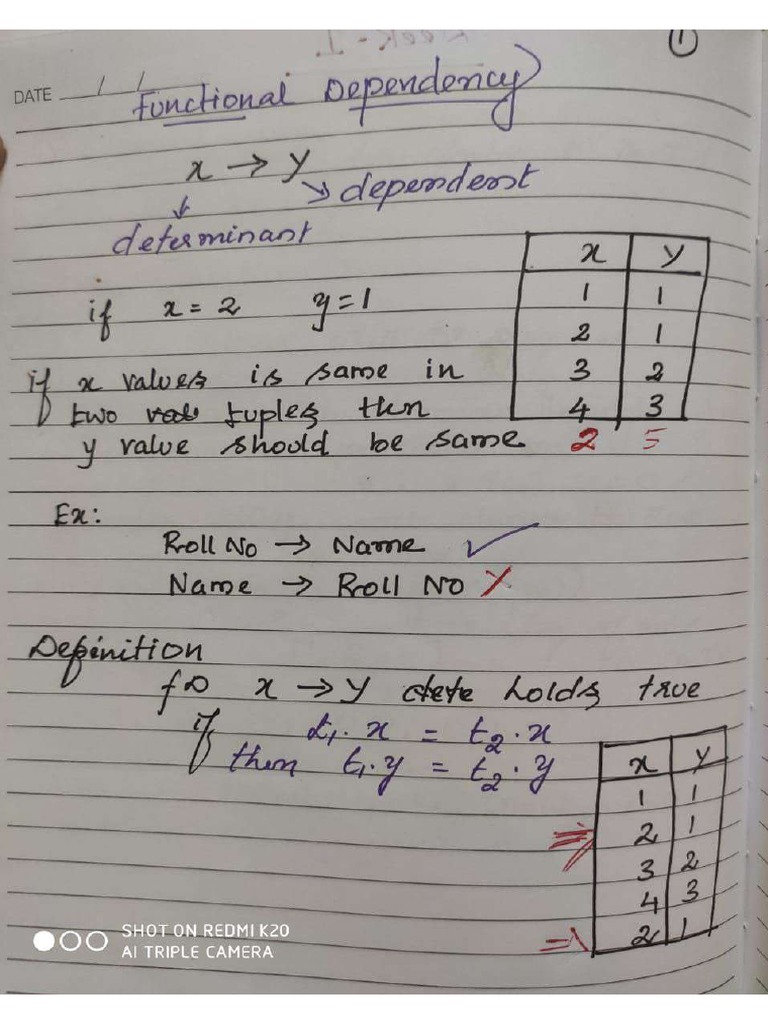 1
DATE __/__/__
Functional Dependency
x → y
→ dependent
determinant
x y
if x = 2 y = 1
1 1
2 1
if x values is same in
3 2
two tuples then
4 3
y value should be same
2 5
Ex:
Roll No → Name ✓
Name → Roll No ✗
Definition
x → y holds true
if t1.x = t2.x
then t1.y = t2.y
x y
1 1
2 1
3 2
4 3
2 1
SHOT ON REDMI K20
AI TRIPLE CAMERA